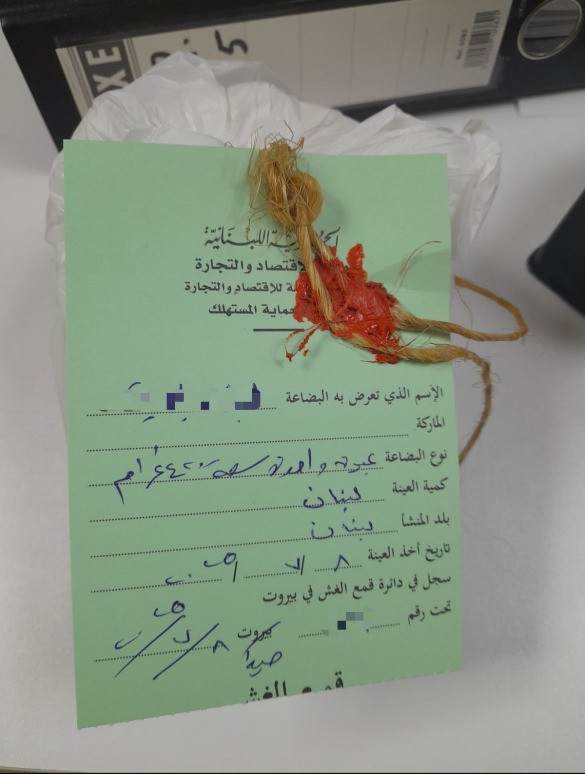 EXE
5
الجمهورية اللبنانية
الاقتصاد والتجارة
للإقتصاد والتجارة
حماية المستهلك
الإسم الذي تعرض به البضاعة
الماركة
نوع البضاعة عبوة واحدة سعة
كمية العينة لبنان
بلد المنشأ لبنان
تاريخ أخذ العينة ٨
سجل في دائرة قمع الغش في بيروت
تحت رقم بيروت
صيدا
قمع الغش